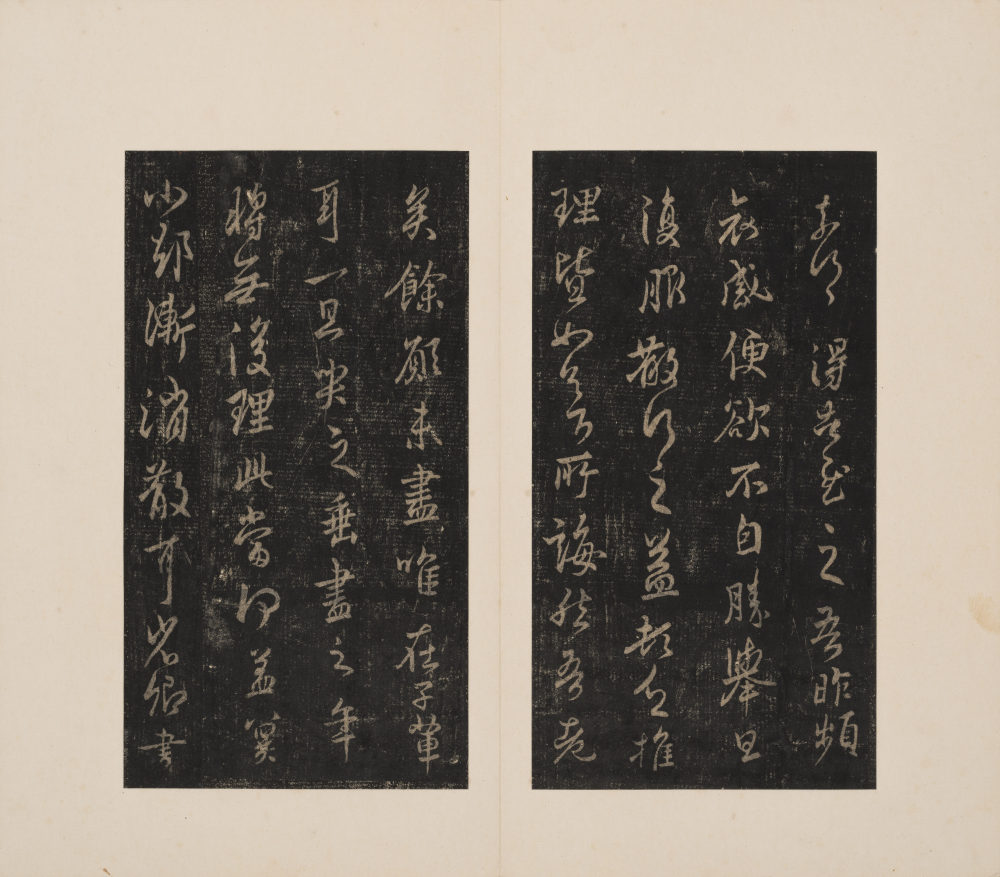 得之吾昨頻
哀感便欲不自勝舉旦
復服散行之益頓乏推
理皆如足下所誨然吾老
矣餘願未盡唯在子輩
耳一旦哭之垂盡之年
將無復理此當何益冀
小郤漸消散耳省卿書